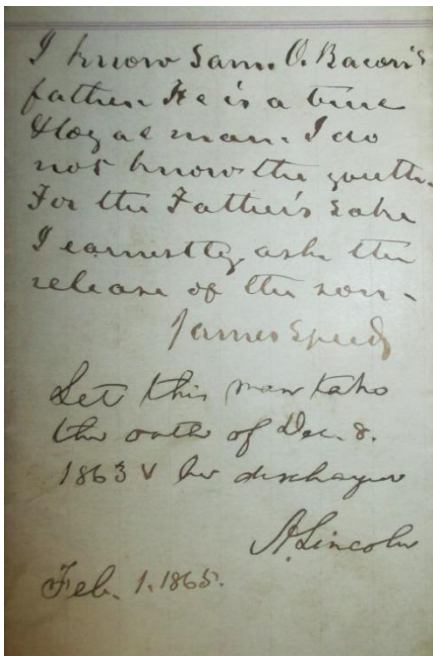 I know Sam. O. Bacon's
father. He is a true
& loyal man. I do
not know the youth.
For the Father's sake
I earnestly ask the
release of the son.
James Speed
Let this man take
the oath of Dec. 8.
1863 & be discharged
A. Lincoln
Feb. 1. 1865.